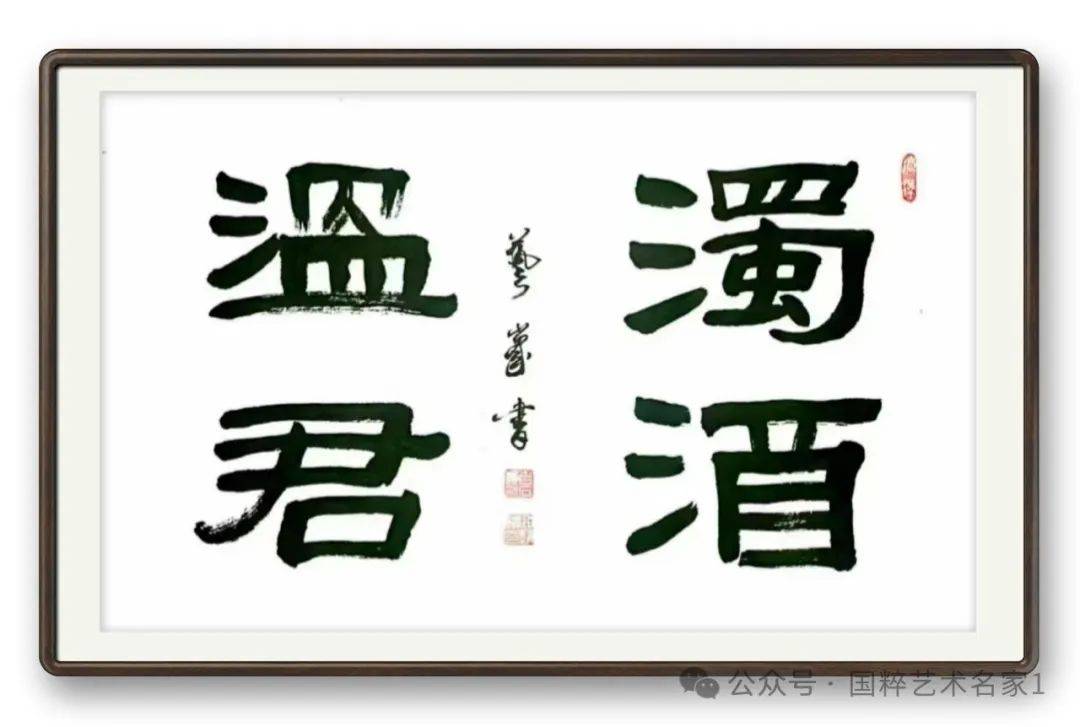 濁酒
溫君
藝書
公众号·国粹艺术名家1